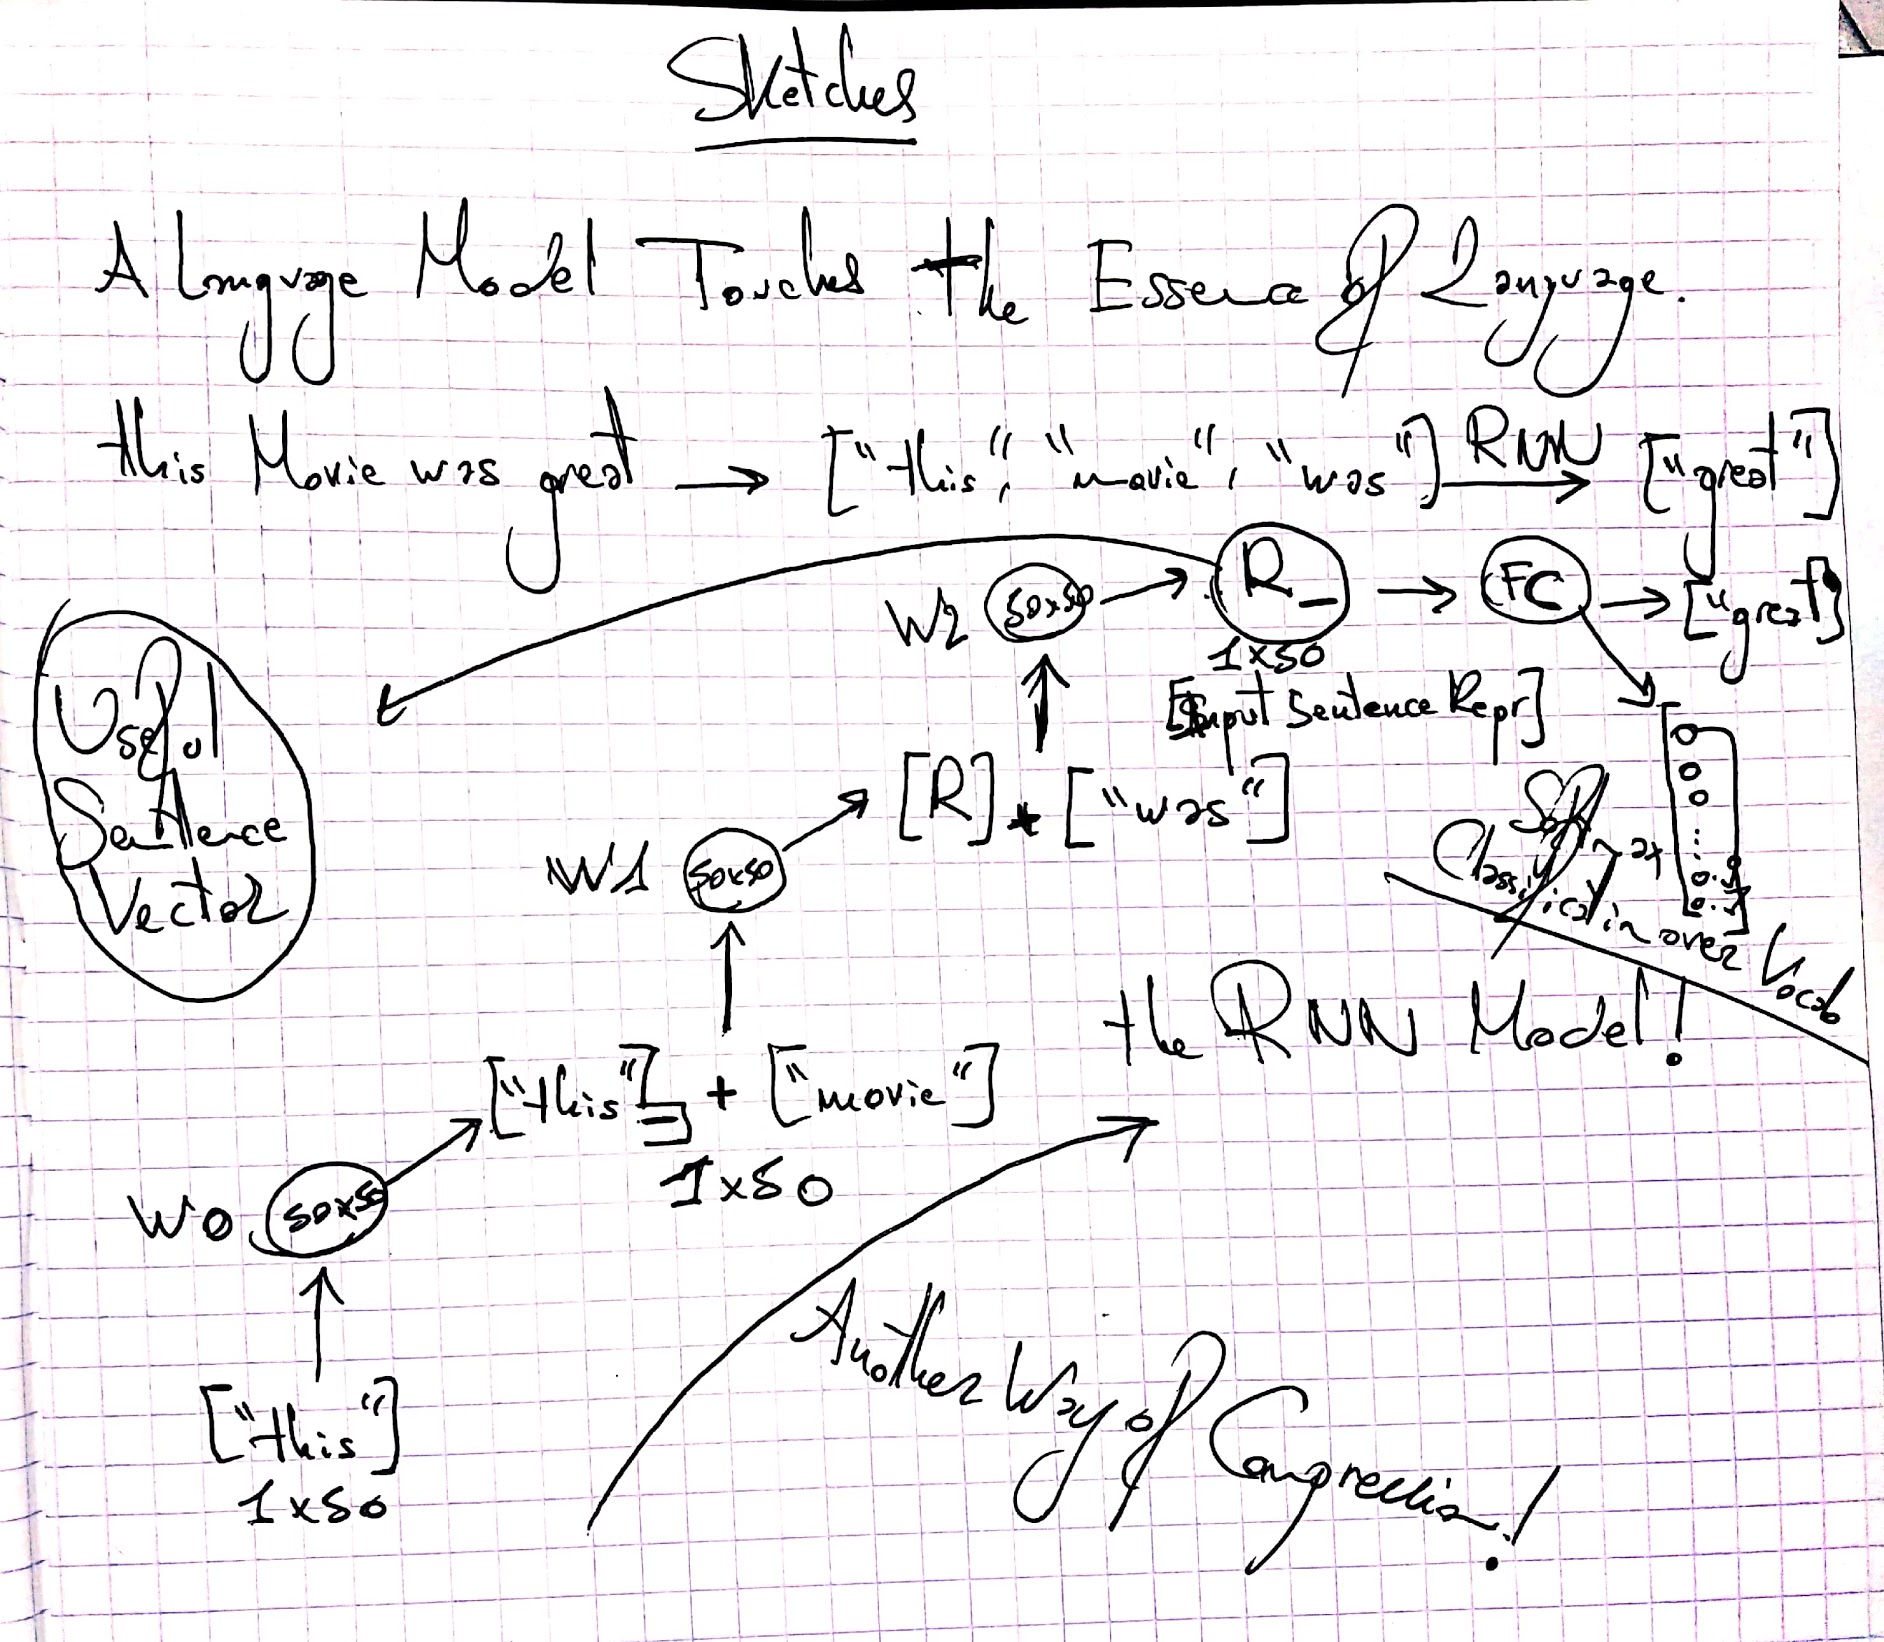 Sketches
A Language Model Touches the Essence of Language.
this Movie was great → ["this", "movie", "was"] RNN → ["great"]
W2 50x50 → R_ → FC → ["great"]
1x50
[Input Sentence Repr]
Useful
Sentence
Vector
[R] + ["was"]
Softmax
Classification over Vocab
W1 50x50
the RNN Model!
["this"] + ["movie"]
1x50
W0 50x50
Another Way of
["this"]
1x50